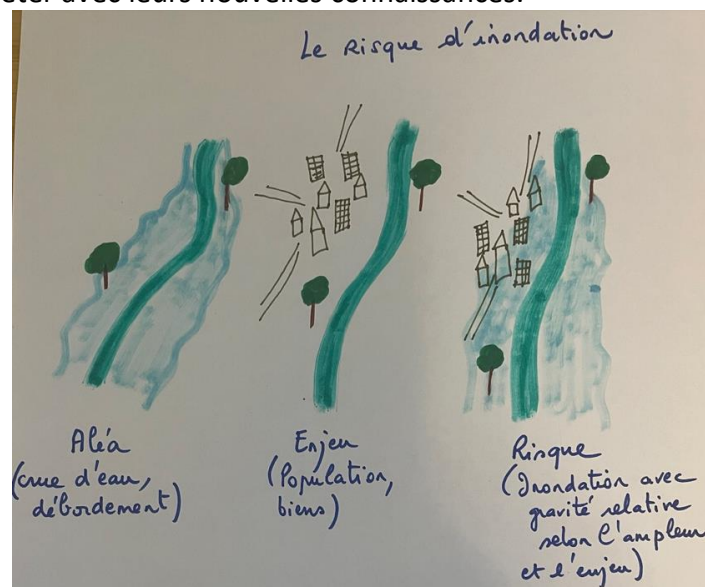 éter avec leurs nouvelles connaissances.
Le Risque d'inondation
Aléa
(crue d'eau,
débordement)
Enjeu
(Population,
biens)
Risque
(Inondation avec
gravité relative
selon l'ampleur
et l'enjeu)